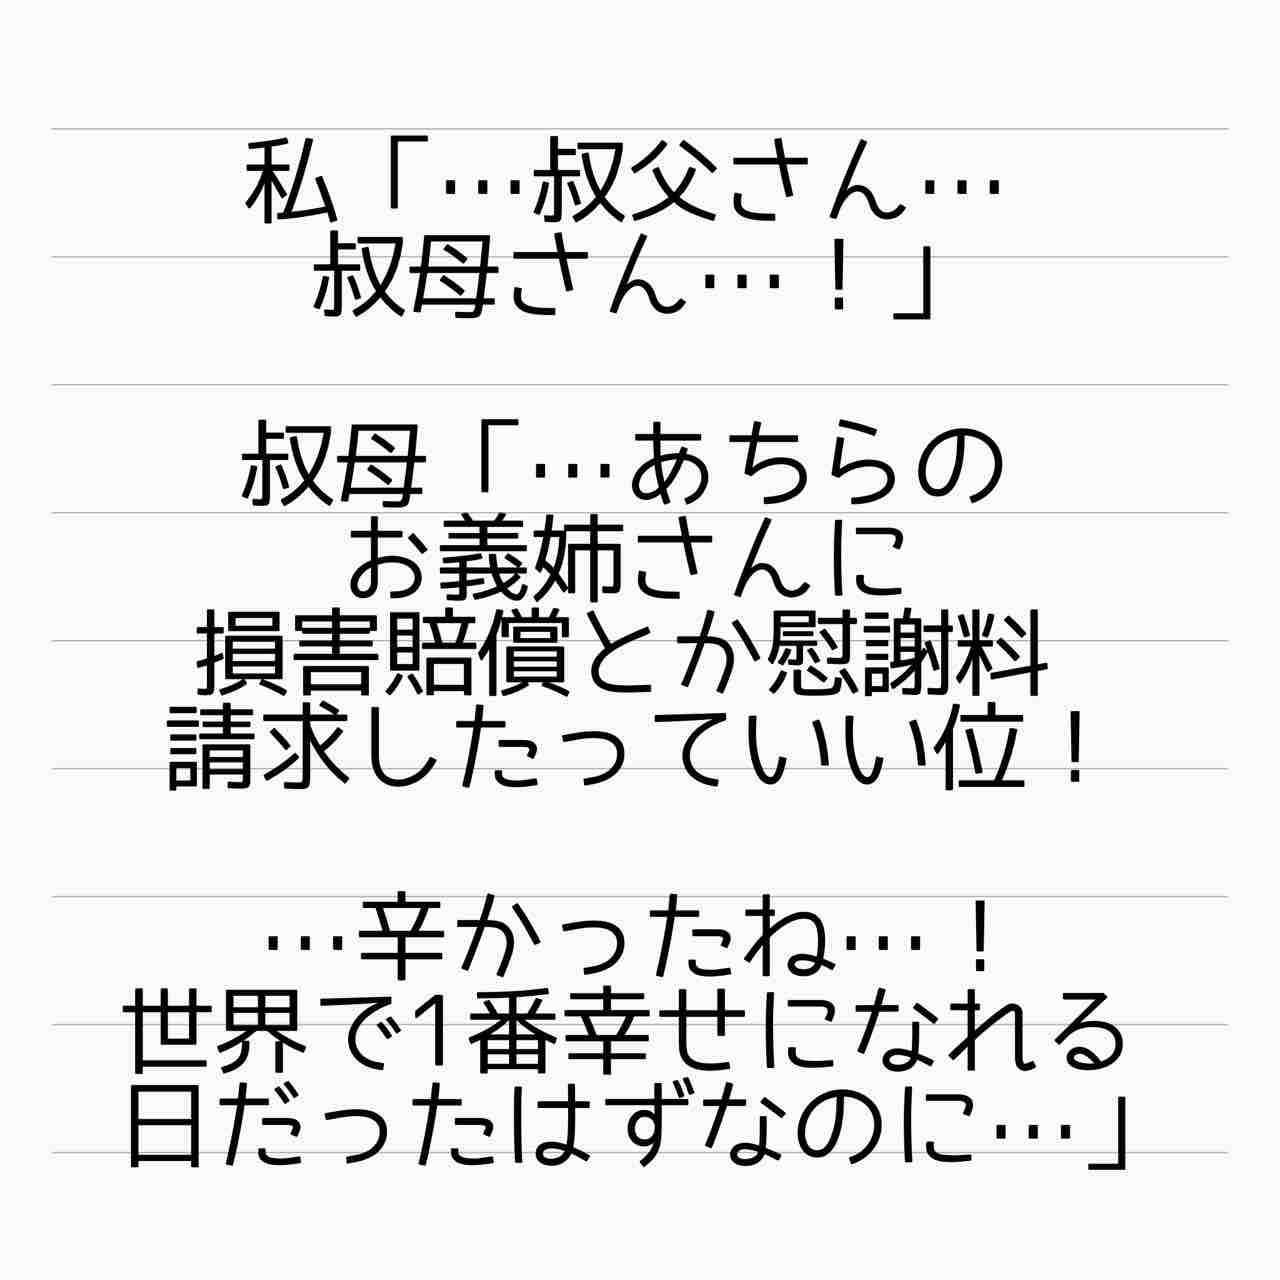 私「…叔父さん…
叔母さん…！」
叔母「…あちらの
お義姉さんに
損害賠償とか慰謝料
請求したっていい位！
…辛かったね…！
世界で1番幸せになれる
日だったはずなのに…」